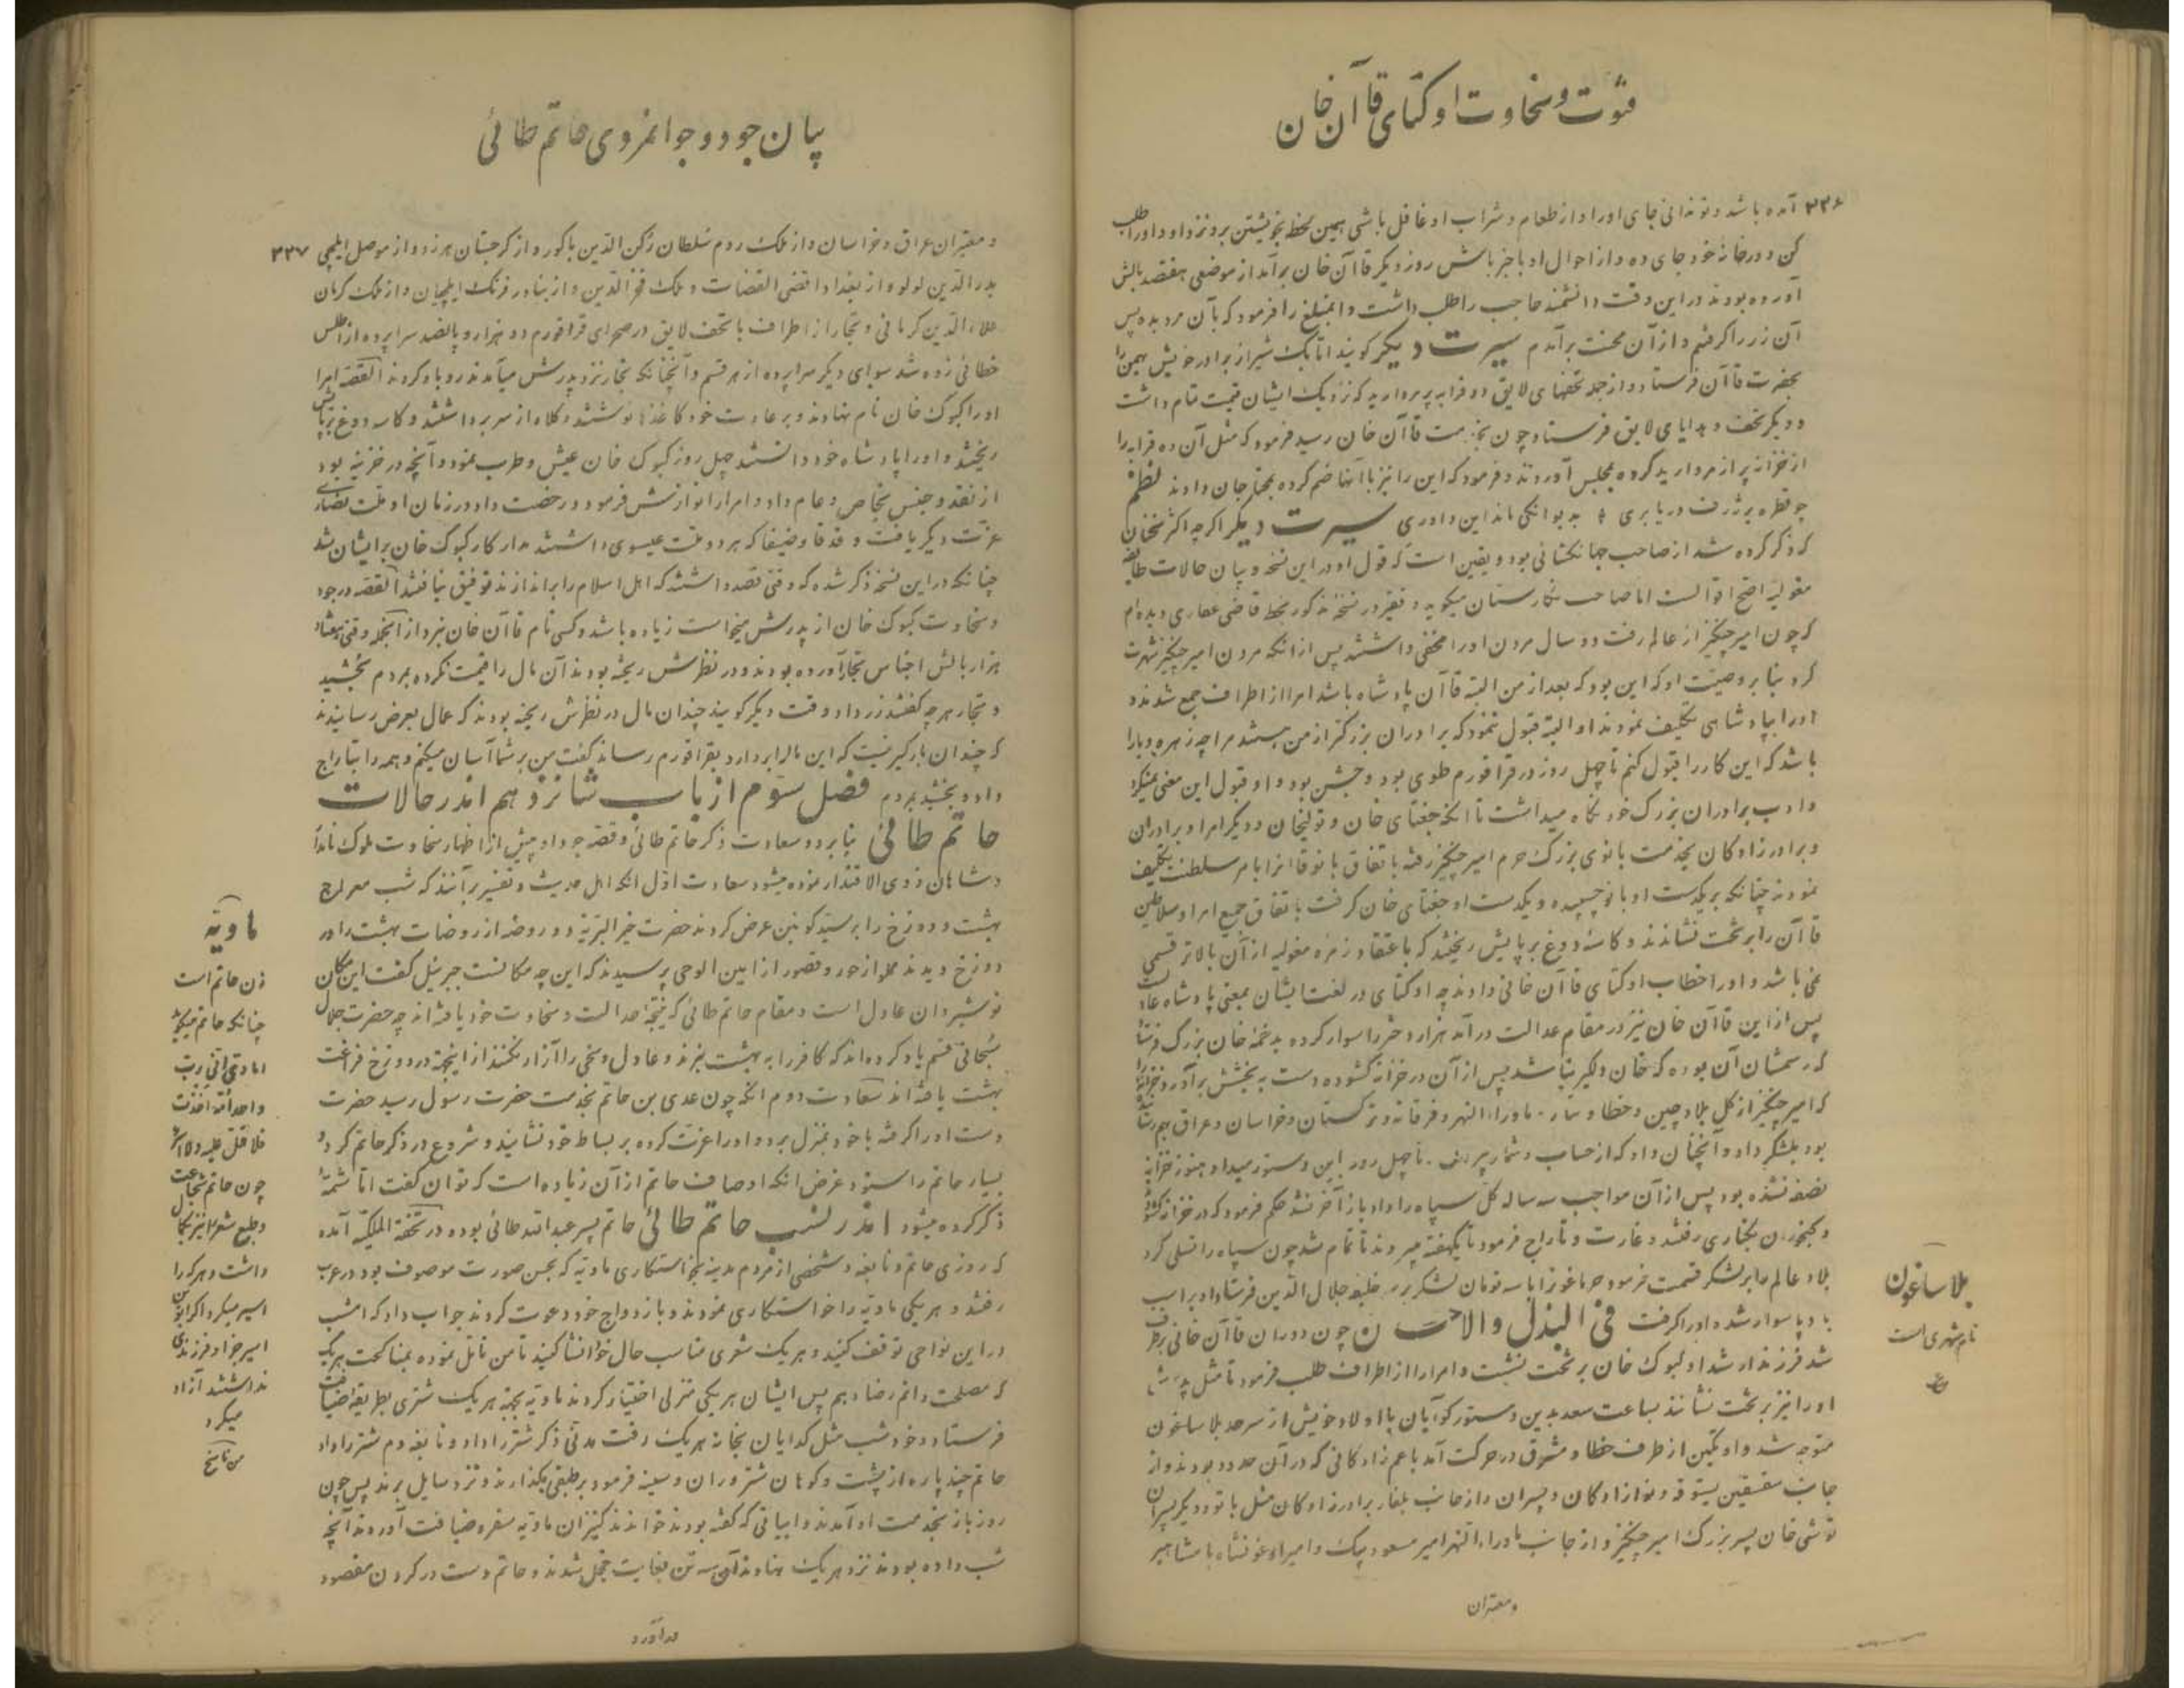 فتوت و سخاوت اوکتای قاآن خان
۳۳۶ آمده باشد و تو ندانی جای او را و از طعام و شراب او غافل باشی همین لحظه بخویشتن برو نزد او و او را طلب
کن و در خانه خود جای ده و از احوال او با خبر باش روز دیگر قاآن خان برآمد از موضعی هفتصد بالش
آورده بودند در این وقت دانشمند حاجب را طلب داشت و آنمبلغ را فرمود که بآن مرد بده پس
آن زر را گرفتم و از آن محنت برآمدم سیرت دیگر گویند اتابک شیراز برادر خویش تهمتن را
بحضرت قاآن فرستاد و از جمله تحفهای لایق دو قرابه پر مروارید که نزدیک ایشان قیمت تمام داشت
و دیگر تحف و هدایای لایق فرستاد چون بخدمت قاآن خان رسید فرمود که مثل آن ده قرابه را
از خزانه پر از مروارید کرده بمجلس آوردند و فرمود که این را نیز با آنها ضم کرده بمحتاجان دادند نظم
چو قطره بر ژرف دریا بری به دیوانگی ماند این داوری سیرت دیگر اگرچه اکثر سخنان
که ذکر کرده شد از صاحب جهانگشائی بود و یقین است که قول او در این نسخه و بیان حالات طایفه
مغولیه اصح اقوالست اما صاحب نگارستان میگوید و فقیر در نسخه مذکور بخط قاضی غفاری دیده‌ام
که چون امیر چنگیز از عالم رفت دو سال مردن او را مخفی داشتند پس از آنکه مردن امیر چنگیز شهرت
کرد بنا بر وصیت او که این بود که بعد از من البته قاآن پادشاه باشد امرا از اطراف جمع شدند و
او را بپادشاهی تکلیف نمودند او البته قبول ننمود که برادران بزرگتر از من هستند مرا چه زهره و یارا
باشد که این کار را قبول کنم تا چهل روز در قراقورم طوی بود و جشن بود و او قبول این معنی نمیکرد
و ادب برادران بزرگ خود نگاه میداشت تا آنکه جغتای خان و تولیخان و دیگر امرا و برادران
و برادرزادگان بخدمت بانوی بزرگ حرم امیر چنگیز رفته باتفاق بانو قاآنرا بامر سلطنت تکلیف
نمودند چنانکه بر یکدست او بانو چسپیده و یکدست او جغتای خان گرفت باتفاق جمیع امرا و سلاطین
قاآن را بر تخت نشاندند و کاسه دوغ بر پایش ریختند که باعتقاد زمره مغولیه از آن بالاتر قسمی
نمی باشد و او را خطاب اوکتای قاآن خانی دادند چه اوکتای در لغت ایشان بمعنی پادشاه عادلست
پس از این قاآن خان نیز در مقام عدالت درآمد هزار دختر را سوار کرده بدخمه خان بزرگ فرستاد
که رسمشان آن بوده که خان دلگیر نباشد پس از آن در خزانه گشوده دست به بخشش برآورد و خزانه را
که امیر چنگیز از کل بلاد چین و خطا و تتار و ماوراء النهر و فرغانه و ترکستان و خراسان و عراق بهم رسانیده
بود بلشکر داد و آنچنان داد که از حساب و شمار بیرون تا چهل روز این دستور میداد و هنوز خزانه
نصف نشده بود پس از آن مواجب سه ساله کل سپاه را داد باز آخر نشد حکم فرمود که در خزانه گشوده
و گنجوران بکناری رفتند و غارت و تاراج فرمود تا یکهفته میبردند تا تمام شد چون سپاه را تسلی کرد
بلاد عالم را بر لشکر قسمت فرمود جرماغون را با سه تومان لشکر بر سر خلیفه جلال الدین فرستاد او بر اسب
باد پا سوار شده او را گرفت فی البذل والاحسان چون دوران قاآن خانی برطرف
شد فرزند ارشد او کیوک خان بر تخت نشست و امرا را از اطراف طلب فرمود تا مثل پدرش
او را نیز بر تخت نشانند بساعت سعد بدین دستور کوآیان با اولاد خویش از سرحد بلاساغون
متوجه شد و اوتکین از طرف خطا و مشرق در حرکت آمد با عم زادگانی که در آن حدود بودند و از
جانب سقسین یستوقه و نوازادگان و پسران و از جانب بلغار برادرزادگان مثل باتو و دیگر پسران
توشی خان پسر بزرگ امیر چنگیز و از جانب ماوراء النهر امیر مسعود بیک و امیر ارغونشاه با مشاهیر
و معتبران
بلاساغون
نام شهری است
بیان جود و جوانمردی حاتم طائی
و معتبران عراق و خراسان و از ملک روم سلطان رکن الدین باکور و از گرجستان هرزد و از موصل ایلچی ۳۳۷
بدرالدین لولو و از بغداد اقضی القضات و ملک فخرالدین و از بنادر فرنگ ایلچیان و از ملک کرمان
علاءالدین کرمانی و تجار از اطراف با تحف لایق در صحرای قراقورم دو هزار و پانصد سراپرده از اطلس
خطائی زده شد سوای دیگر سراپرده از هر قسم و آنچنانکه تجار نزد پدرش میآمدند رو باو کردند القصه امرا
او را کیوک خان نام نهادند و بر عادت خود کاغذها نوشتند و کلاه از سر برداشتند و کاسه دوغ بر پایش
ریختند و او را پادشاه خود دانستند چهل روز کیوک خان عیش و طرب نمود و آنچه در خزینه بود
از نقد و جنس بخاص و عام داد و امرا را نوازش فرمود و رخصت داد و در زمان او ملت نصاری
عزت دیگر یافت و قدقا و ضیفا که هر دو ملت عیسوی داشتند مدار کار کیوک خان بر ایشان شد
چنانکه در این نسخه ذکر شده که وقتی قصد داشتند که اهل اسلام را براندازند توفیق نیافتند القصه در جود
و سخاوت کیوک خان از پدرش میخواست زیاده باشد و کسی نام قاآن خان نبرد از آنجمله وقتی هفتاد
هزار بالش اجناس تجار آورده بودند و در نظرش ریخته بودند آن مال را قیمت نکرده بمردم بخشید
و تجار هرچه گفتند زر داد و وقت دیگر گویند چندان مال در نظرش ریخته بودند که عمال بعرض رسانیدند
که چندان بارگیر نیست که این مال را بردارد بقراقورم رساند گفت من بر شما آسان میکنم و همه را بتاراج
داد و بخشید بمردم فصل سوم از باب شانزدهم اندر حالات
حاتم طائی بنا بر دو سعادت ذکر حاتم طائی و قصه جود او پیش از اظهار سخاوت ملوک نامدار
و شاهان ذوی الاقتدار نموده میشود سعادت اول آنکه اهل حدیث و تفسیر برآنند که شب معراج
بهشت و دوزخ را بر سید کونین عرض کردند حضرت خیر البریه دو روضه از روضات بهشت را در
دوزخ دیدند مملو از حور و قصور از امین الوحی پرسیدند که این چه مکانست جبرئیل گفت این مکان
نوشیروان عادل است و مقام حاتم طائی که نتیجه عدالت و سخاوت خود یافته‌اند چه حضرت جلال
سبحانی قسم یاد کرده‌اند که کافر را به بهشت نبرند و عادل و سخی را آزار نکنند از اینجهت در دوزخ فراغت
بهشت یافته‌اند سعادت دوم آنکه چون عدی بن حاتم بخدمت حضرت رسول رسید حضرت
دست او را گرفته با خود بمنزل برد و او را عزت کرده بر بساط خود نشانید و شروع در ذکر حاتم کرد و
بسیار حاتم را ستود غرض آنکه اوصاف حاتم از آن زیاده است که توان گفت اما شمه
ذکر کرده میشود اندر نسب حاتم طائی حاتم پسر عبدالله طائی بوده و در تحفة الملکیه آمده
که روزی حاتم و نابغه و شخصی از مردم مدینه بخواستکاری ماویه که بحسن صورت موصوف بود در عرب
رفتند و هر یکی ماویه را خواستکاری نمودند و بازدواج خود دعوت کردند جواب داد که امشب
در این نواحی توقف کنید و هر یک شعری مناسب حال خود انشا کنید تا من تامل نموده بمناکحت هر یک
که مصلحت دانم رضا دهم پس ایشان هر یکی منزلی اختیار کردند ماویه بجهة هر یک شتری بطریقه ضیافت
فرستاد و خود شب مثل گدایان بخانه هر یک رفت مدنی ذکر شتر را داد و نابغه دم شتر را داد
حاتم چند پاره از پشت و کوهان شتر و ران و سینه فرمود بر طبقی بگذارند و نزد سایل برند پس چون
روز باز بخدمت او آمدند و ابیاتی که گفته بودند خواندند کنیزان ماویه سفره ضیافت آوردند آنچه
شب داده بودند نزد هر یک نهادند آن سه تن بغایت خجل شدند و حاتم دست در گردن مقصود
درآورد
ماویه
زن حاتم است
چنانکه حاتم میگوید
اماوی انی رب
واحد امه اخذت
فلا قتل علیه ولا اسر
چون حاتم شجاعت
و طبع شعر را نیز بکمال
داشت و هر که را
اسیر میکرد اگر آن
اسیر جز او فرزندی
نداشتند آزاد
میکرد
من ناسخ